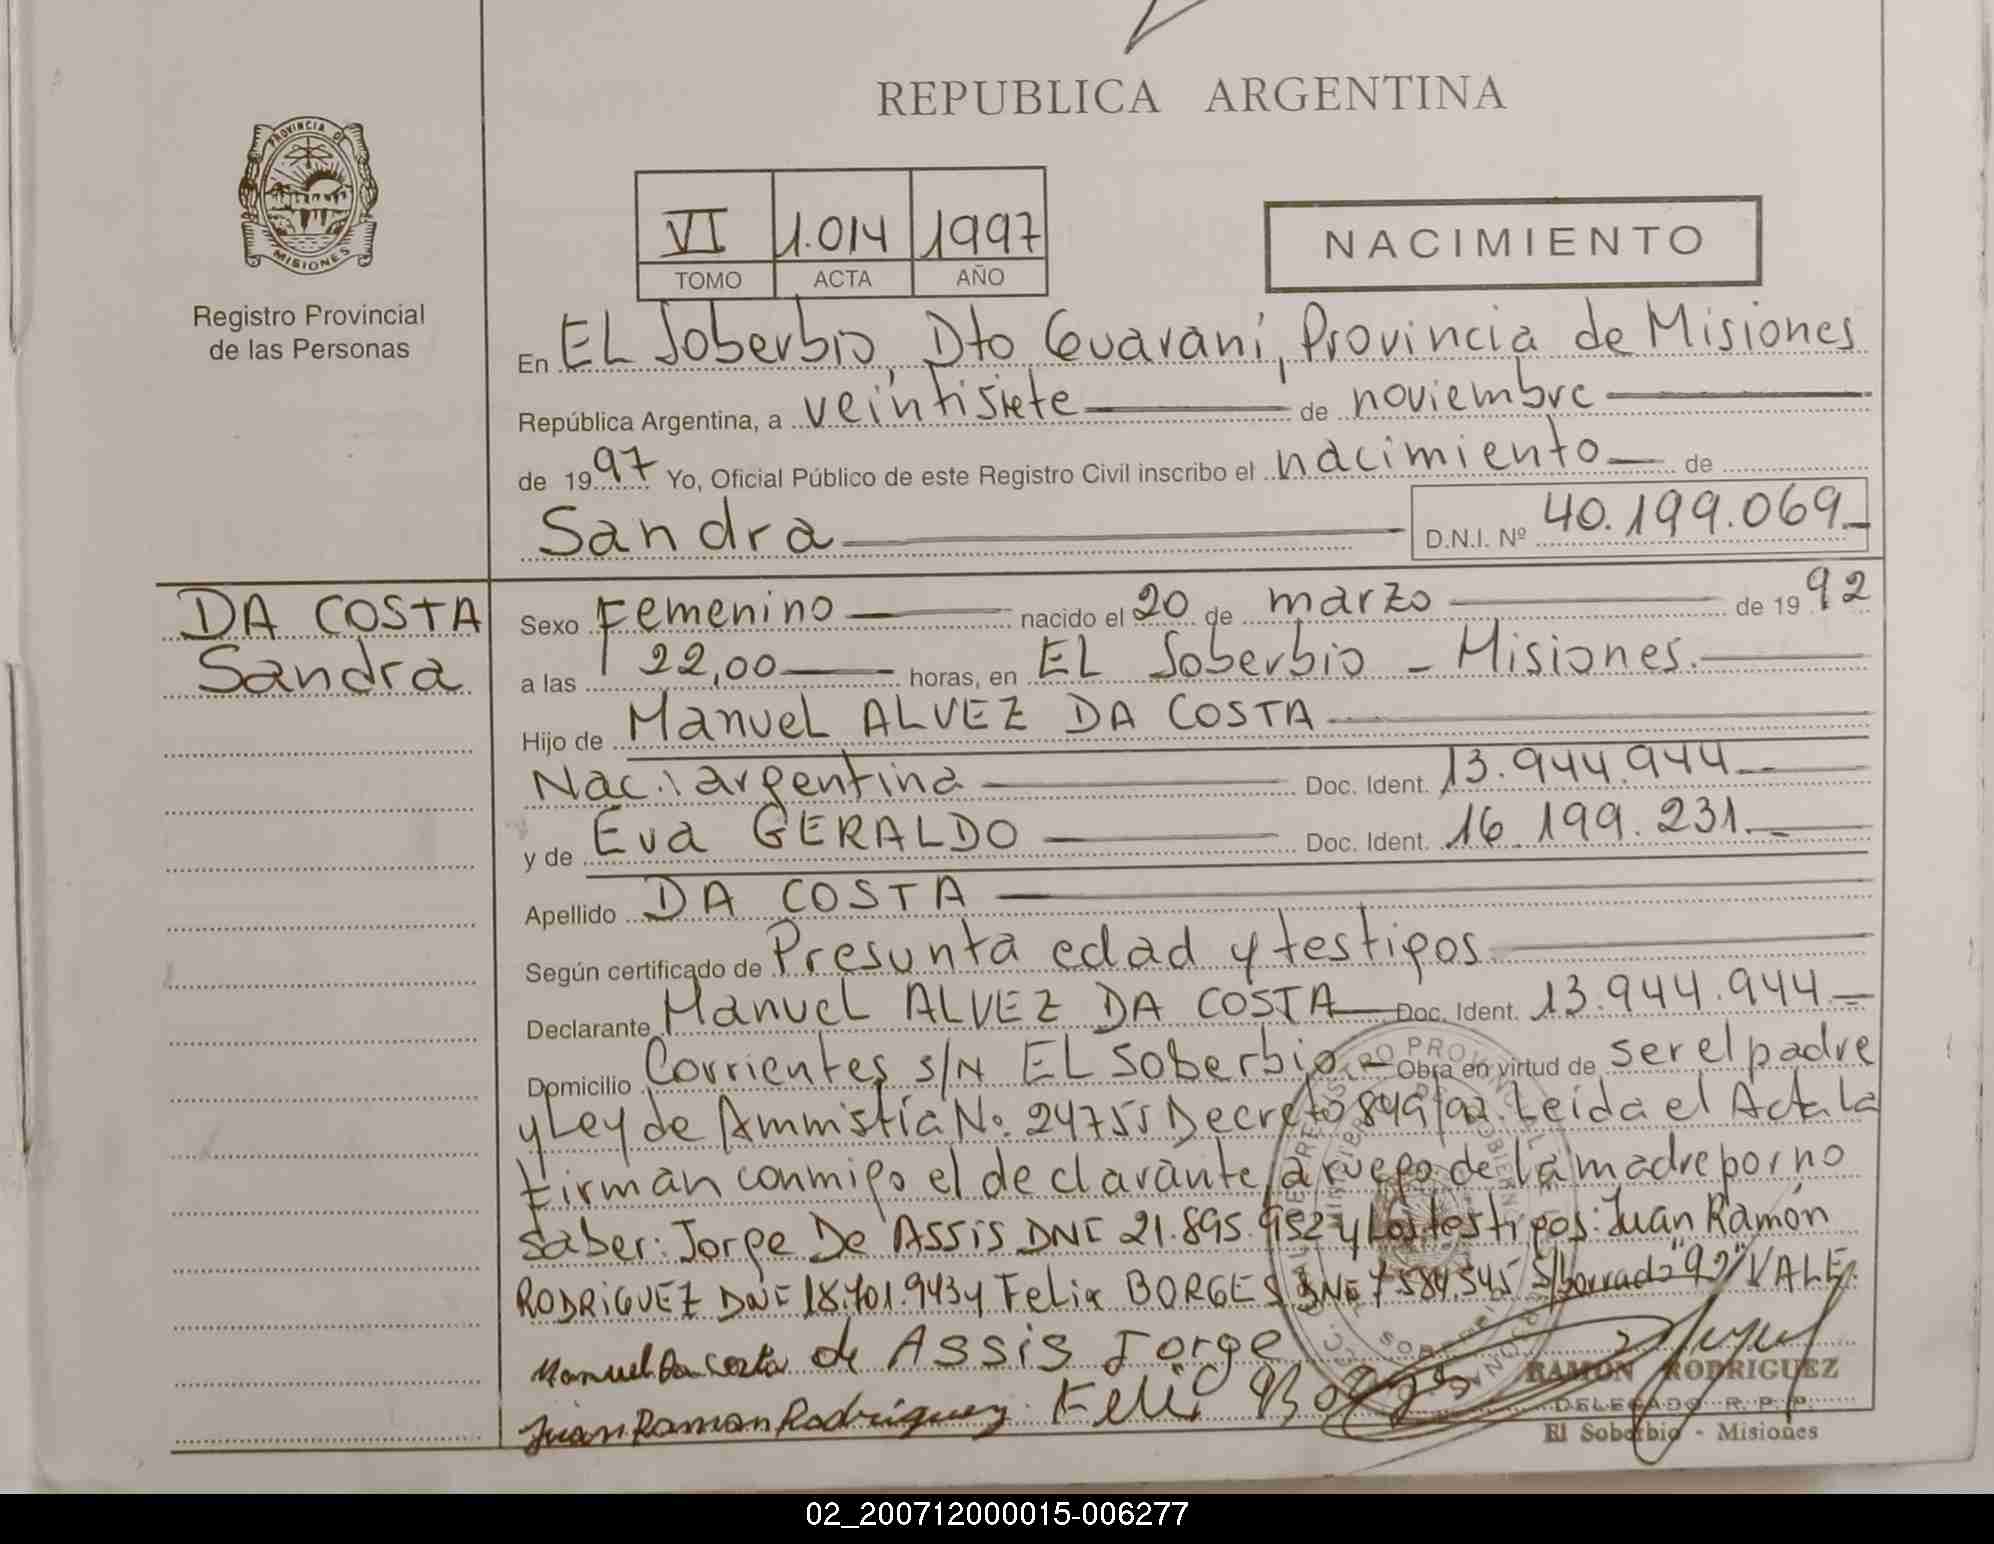 REPUBLICA ARGENTINA
PROVINCIA DE
MISIONES
Registro Provincial
de las Personas
VI 1.014 1997
TOMO ACTA AÑO
NACIMIENTO
En EL Soberbio, Dto Guaraní, Provincia de Misiones
República Argentina, a veintisiete de noviembre
de 1997 Yo, Oficial Público de este Registro Civil inscribo el nacimiento de
Sandra D.N.I. Nº 40.199.069
DA COSTA
Sandra
Sexo Femenino nacido el 20 de marzo de 1992
a las 22,00 horas, en EL Soberbio - Misiones.
Hijo de Manuel ALVEZ DA COSTA
Nac. argentina Doc. Ident. 13.944.944
y de Eva GERALDO Doc. Ident. 16.199.231.
Apellido DA COSTA
Según certificado de Presunta edad y testigos
Declarante Manuel ALVEZ DA COSTA Doc. Ident. 13.944.944
Domicilio Corrientes s/N EL Soberbio.- Obra en virtud de ser el padre
y Ley de Ammistía No: 24755 Decreto 849/92. Leída el Acta La
Firman conmigo el declarante, a ruego de la madre por no
saber: Jorge De Assis DNI 21.895.952 y Los testigos: Juan Ramón
RODRIGUEZ DNI 18.701.943 y Felix BORGES DNI 7584.545 S/borrado "92" VALE.
Manuel Da Costa de Assis Jorge
Juan Ramon Rodriguez Felix Borges
RAMON RODRIGUEZ
DELEGADO R. P. P.
El Soberbio - Misiones
02_200712000015-006277